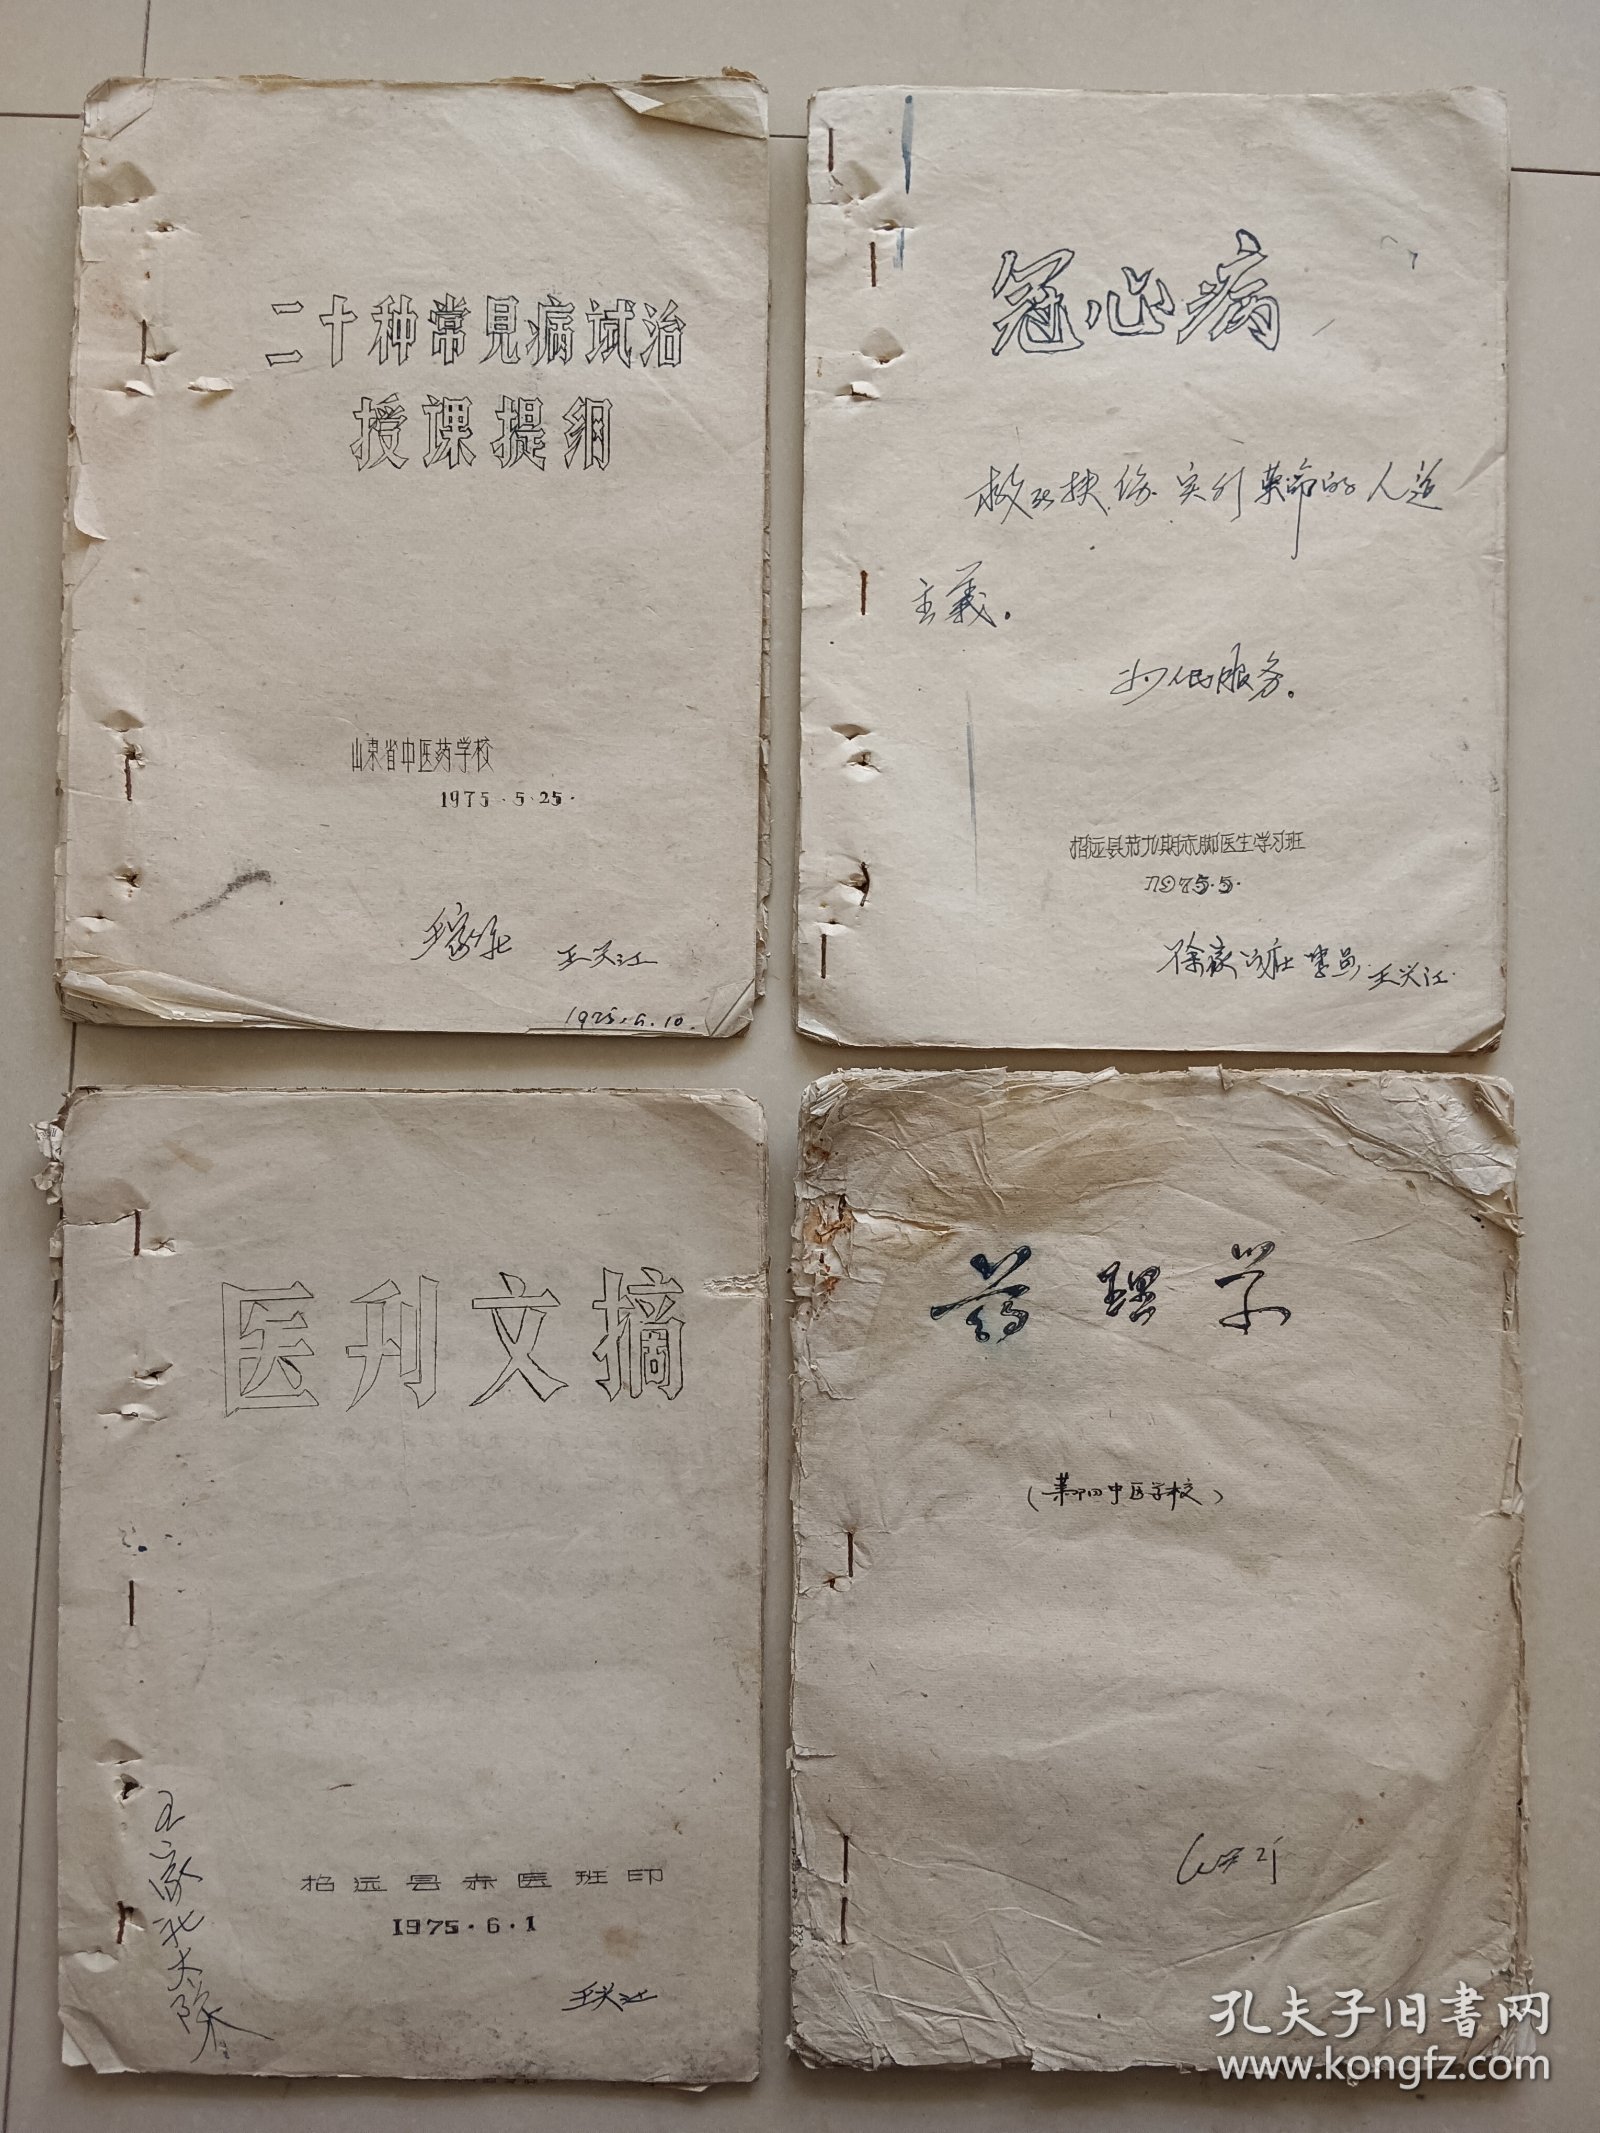 二十种常見病试治
授课提纲
山东省中医药学校
1975.5.25.
王家北 王兴江
1975.6.10.
冠心病
救死扶伤实行革命的人道
主義。
为人民服务。
招远县第九期赤脚医生学习班
1975.5.
徐家公社学员 王兴江
医刊文摘
王家北大队
招远县赤医班印
1975.6.1
王兴江
药理学
(莱阳中医学校)
孔夫子旧書网
www.kongfz.com